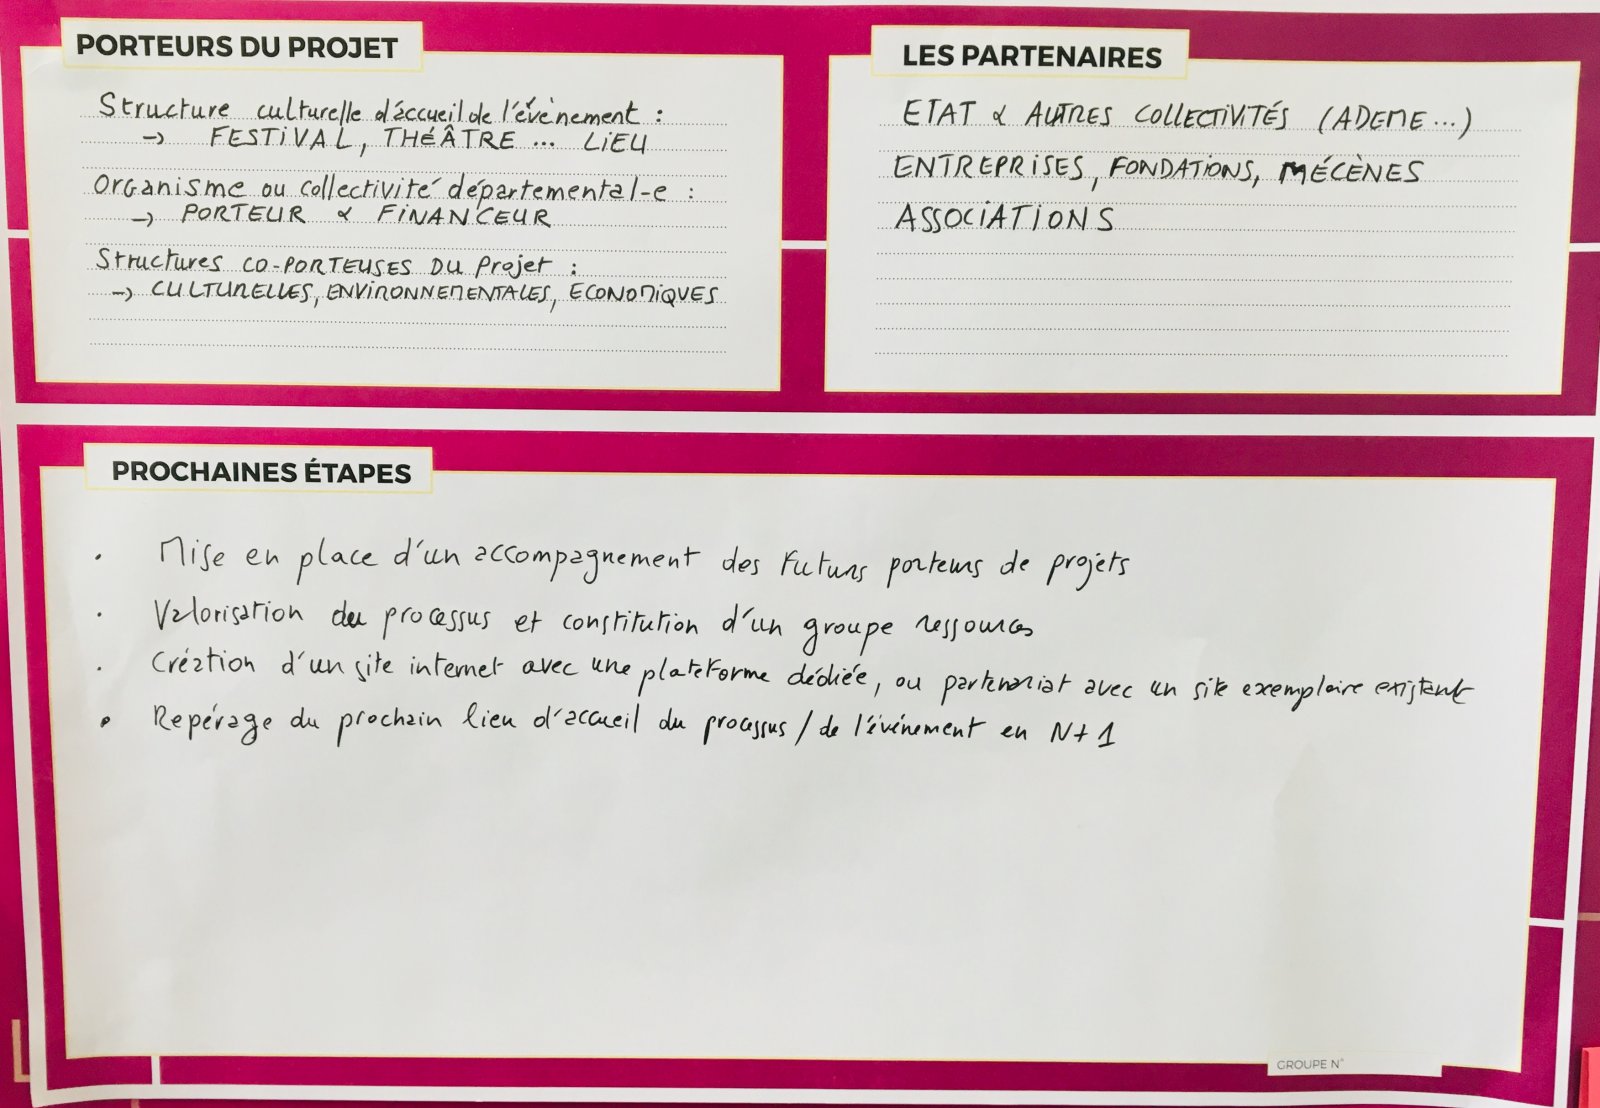 PORTEURS DU PROJET
Structure culturelle d'accueil de l'évènement :
→ FESTIVAL, THÉÂTRE ... LIEU
Organisme ou collectivité départemental-e :
→ PORTEUR & FINANCEUR
Structures CO-PORTEUSES DU Projet :
→ CULTURELLES, ENVIRONNEMENTALES, ECONOMIQUES
LES PARTENAIRES
ETAT & AUTRES COLLECTIVITÉS (ADEME...)
ENTREPRISES, FONDATIONS, MÉCÈNES
ASSOCIATIONS
PROCHAINES ÉTAPES
• Mise en place d'un accompagnement des futurs porteurs de projets
• Valorisation du processus et constitution d'un groupe ressources
• Création d'un site internet avec une plateforme dédiée, ou partenariat avec un site exemplaire existant
• Repérage du prochain lieu d'accueil du processus / de l'événement en N+1
GROUPE N°